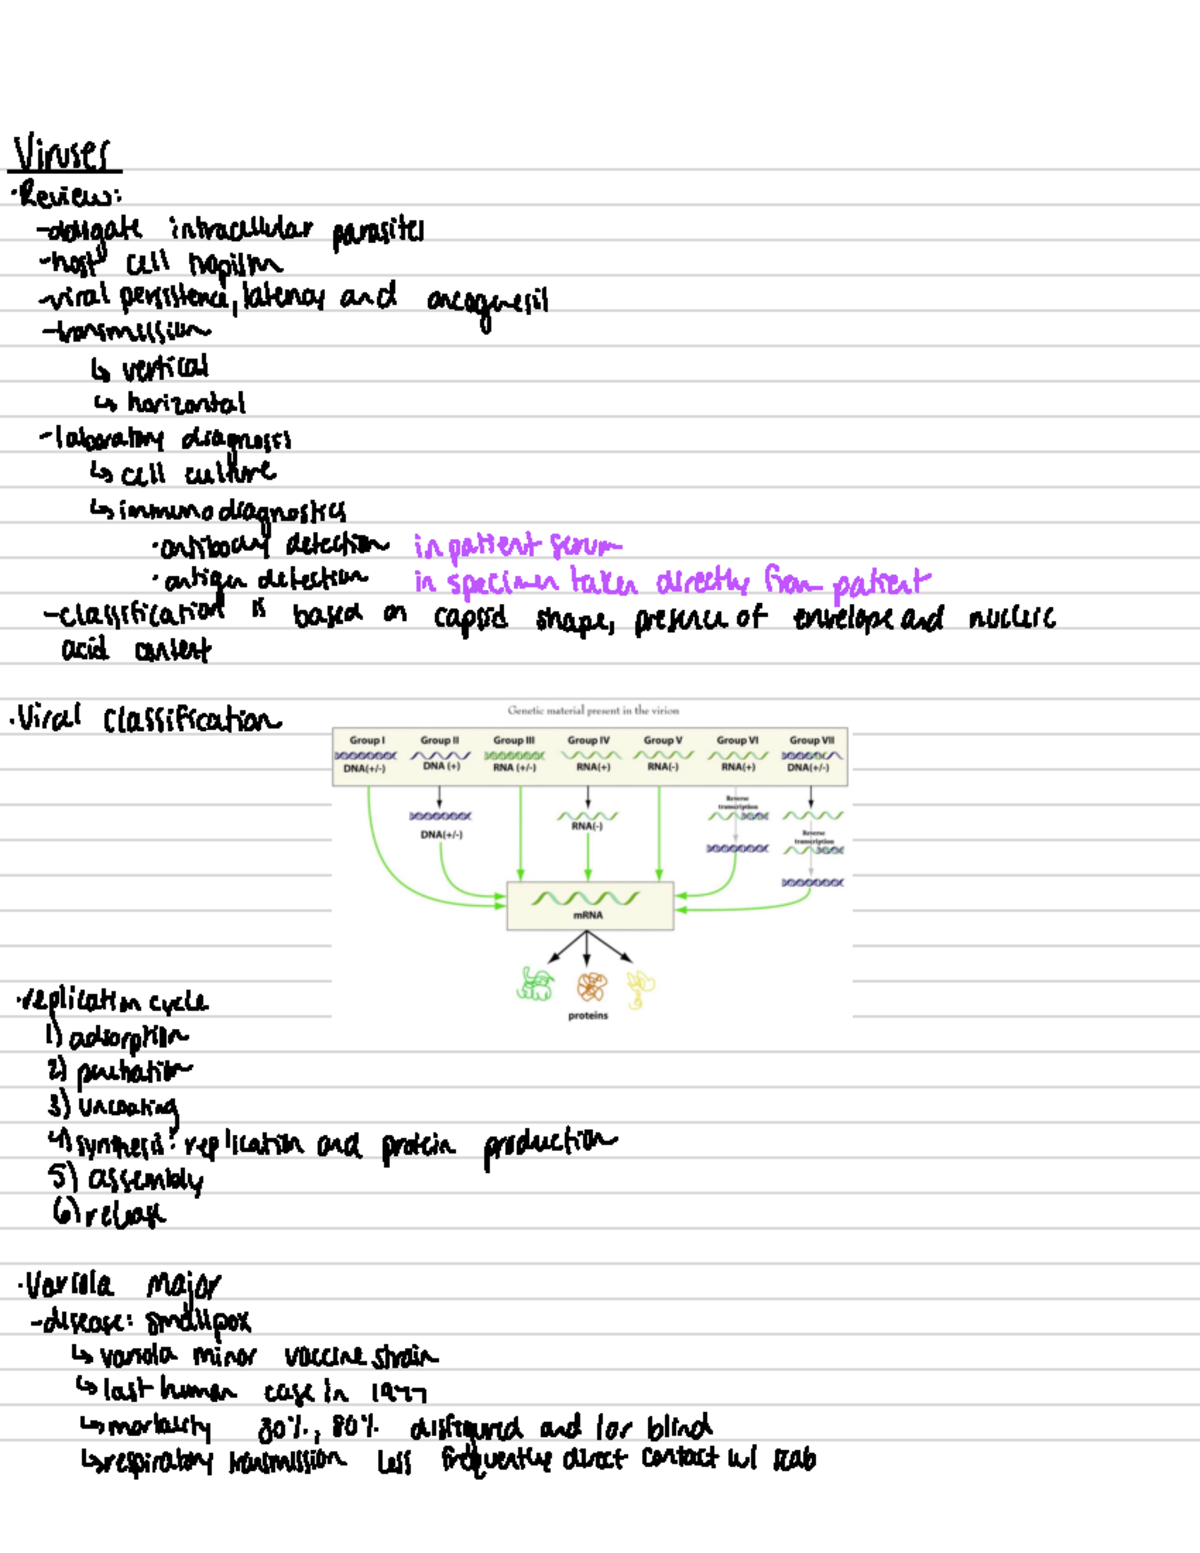 Viruses
·Review:
-obligate intracellular parasites
-host cell tropism
-viral persistence, latency and oncogenesis
-transmission
↳ vertical
↳ horizontal
-laboratory diagnosis
↳ cell culture
↳ immunodiagnostics
·antibody detection in patient serum
·antigen detection in specimen taken directly from patient
-classification is based on capsid shape, presence of envelope and nucleic
acid content
·Viral Classification
Genetic material present in the virion
Group I Group II Group III Group IV Group V Group VI Group VII
DNA(+/-) DNA (+) RNA (+/-) RNA(+) RNA(-) RNA(+) DNA(+/-)
Reverse
transcription
DNA(+/-) RNA(-)
Reverse
transcription
mRNA
proteins
·replication cycle
1) adsorption
2) penetration
3) uncoating
4) synthesis: replication and protein production
5) assembly
6) release
·Variola major
-disease: smallpox
↳ variola minor vaccine strain
↳ last human case in 1977
↳ mortality 30%, 80% disfigured and/or blind
↳ respiratory transmission less frequently direct contact w/ scab